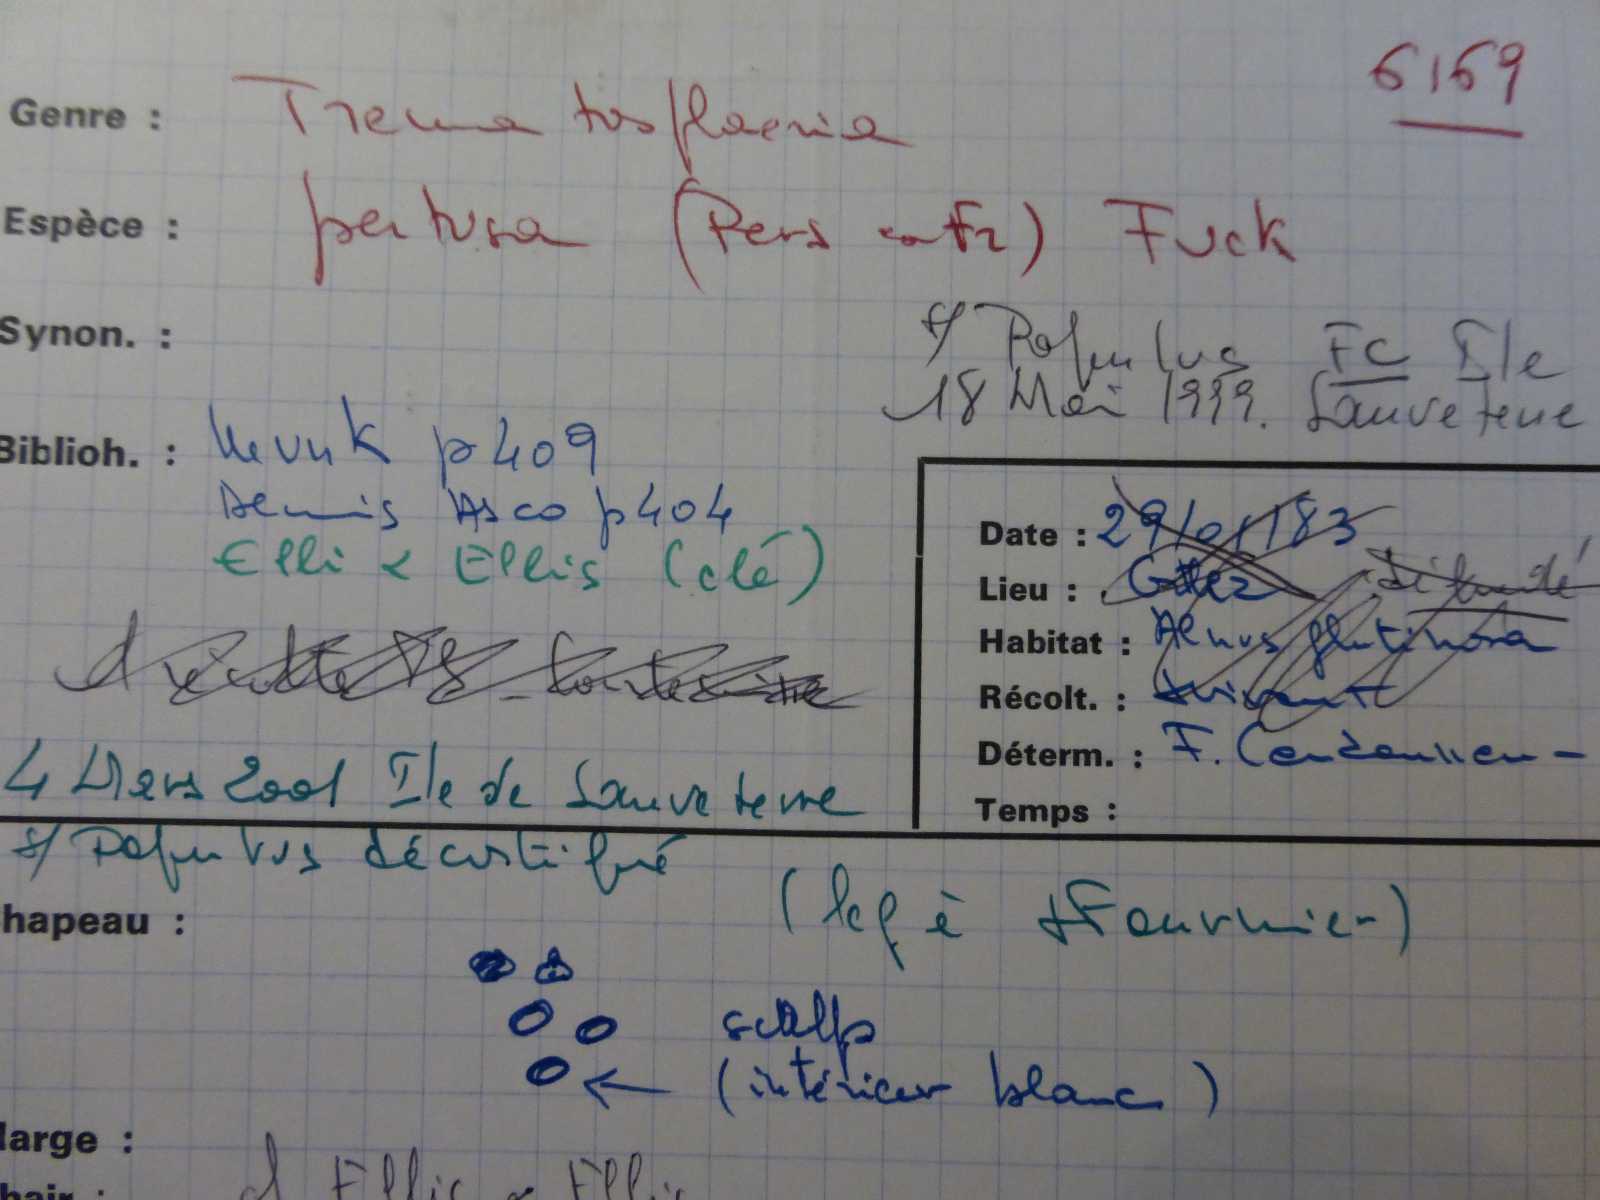 6169
Genre : Trematosphaeria
Espèce : pertusa (Pers ex Fr) Fuck
Synon. :
s/ Populus FC Ile
18 Mai 1999. Sauveterre
Biblioh. : Munk p 409
Dennis Asco p 404
Elli & Ellis (clé)
Date : 29/01/83
Lieu :
Habitat : Alnus glutinosa
Récolt. :
Déterm. : F. Candoussau
Temps :
4 Mars 2001 Ile de Sauveterre
s/ Populus décortiqué
(leg à Fournier)
hapeau :
scalp
(intérieur blanc)
large :
hair :
Ellis & Ellis